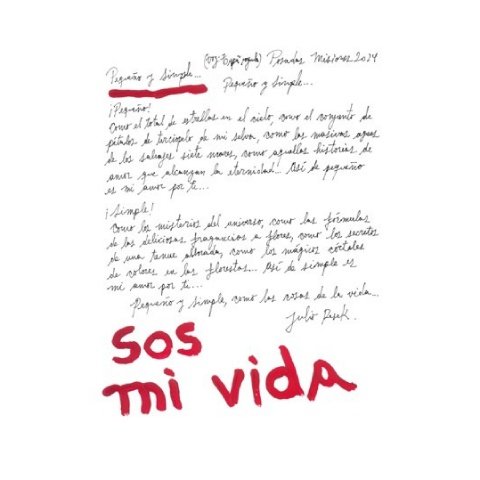 Pequeño y simple... Posadas Misiones 2024
Pequeño y simple...
¡Pequeño!
Como el total de estrellas en el cielo, como el conjunto de
pétalos de terciopelo de mi selva, como las masivas aguas
de los salvajes siete mares, como aquellas historias de
amor que alcanzan la eternidad! Así de pequeño
es mi amor por ti...
¡Simple!
Como los misterios del universo, como las fórmulas
de las deliciosas fragancias a flores, como los secretos
de una tenue alborada, como los mágicos cócteles
de colores en las florestas... Así de simple es
mi amor por ti...
Pequeño y simple, como las cosas de la vida...
Julio
sos
mi vida